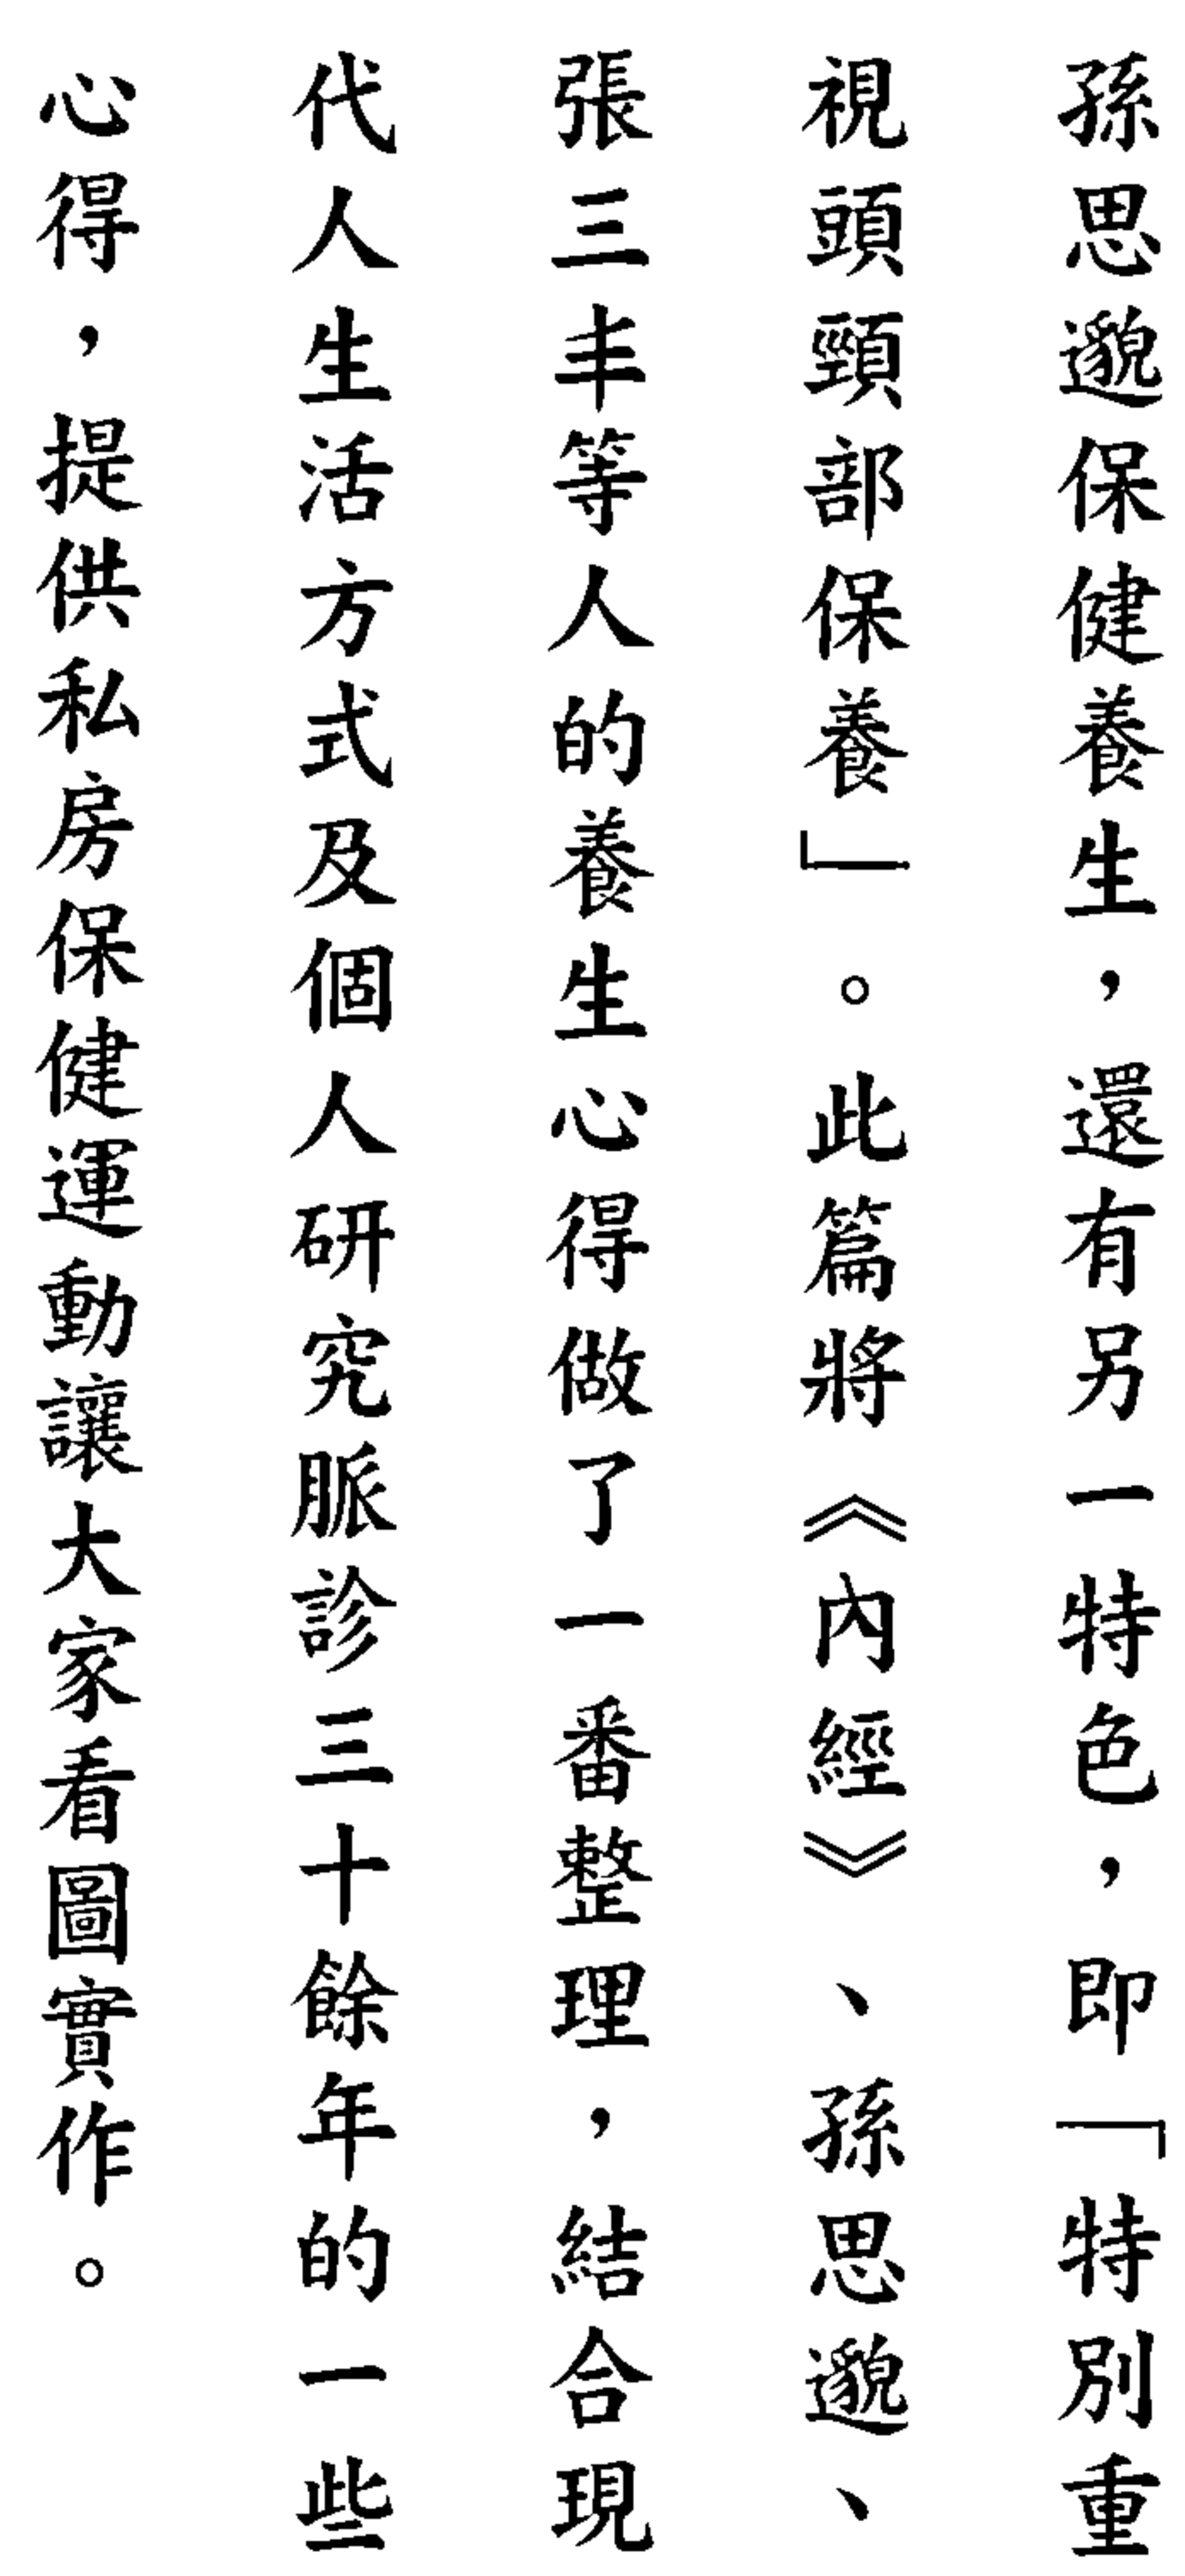 孫思邈保健養生，還有另一特色，即「特別重
視頭頸部保養」。此篇將《內經》、孫思邈、
張三丰等人的養生心得做了一番整理，結合現
代人生活方式及個人研究脈診三十餘年的一些
心得，提供私房保健運動讓大家看圖實作。